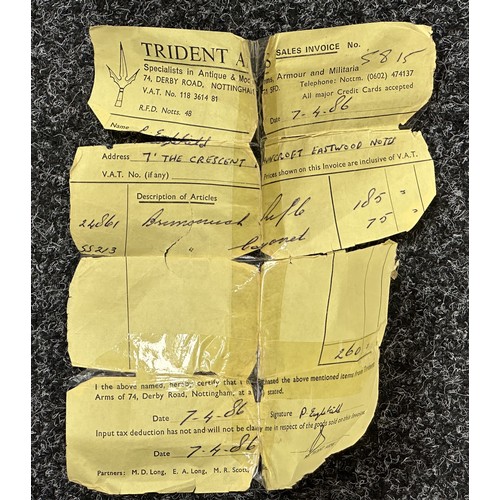 TRIDENT A S SALES INVOICE No. 5815
Specialists in Antique & Mod ms, Armour and Militaria
74, DERBY ROAD, NOTTINGHAM 5FD. Telephone: Nottm. (0602) 474137
V.A.T. No. 118 3614 81 All major Credit Cards accepted
R.F.D. Notts. 48 Date 7-4-86
Name P. Eighfield
Address 7' THE CRESCENT CROFT EASTWOOD NOTTS
V.A.T. No. (if any) Prices shown on this Invoice are inclusive of V.A.T.
Description of Articles
24861 Rifle 185
55213 " Bayonet 75
260
I the above named, hereby certify that I purchased the above mentioned items from Trident
Arms of 74, Derby Road, Nottingham, at stated.
Date 7-4-86 Signature P Eighfield
Input tax deduction has not and will not be claimed by me in respect of the goods sold on this invoice.
Date 7-4-86
Partners: M. D. Long, E. A. Long, M. R. Scott,